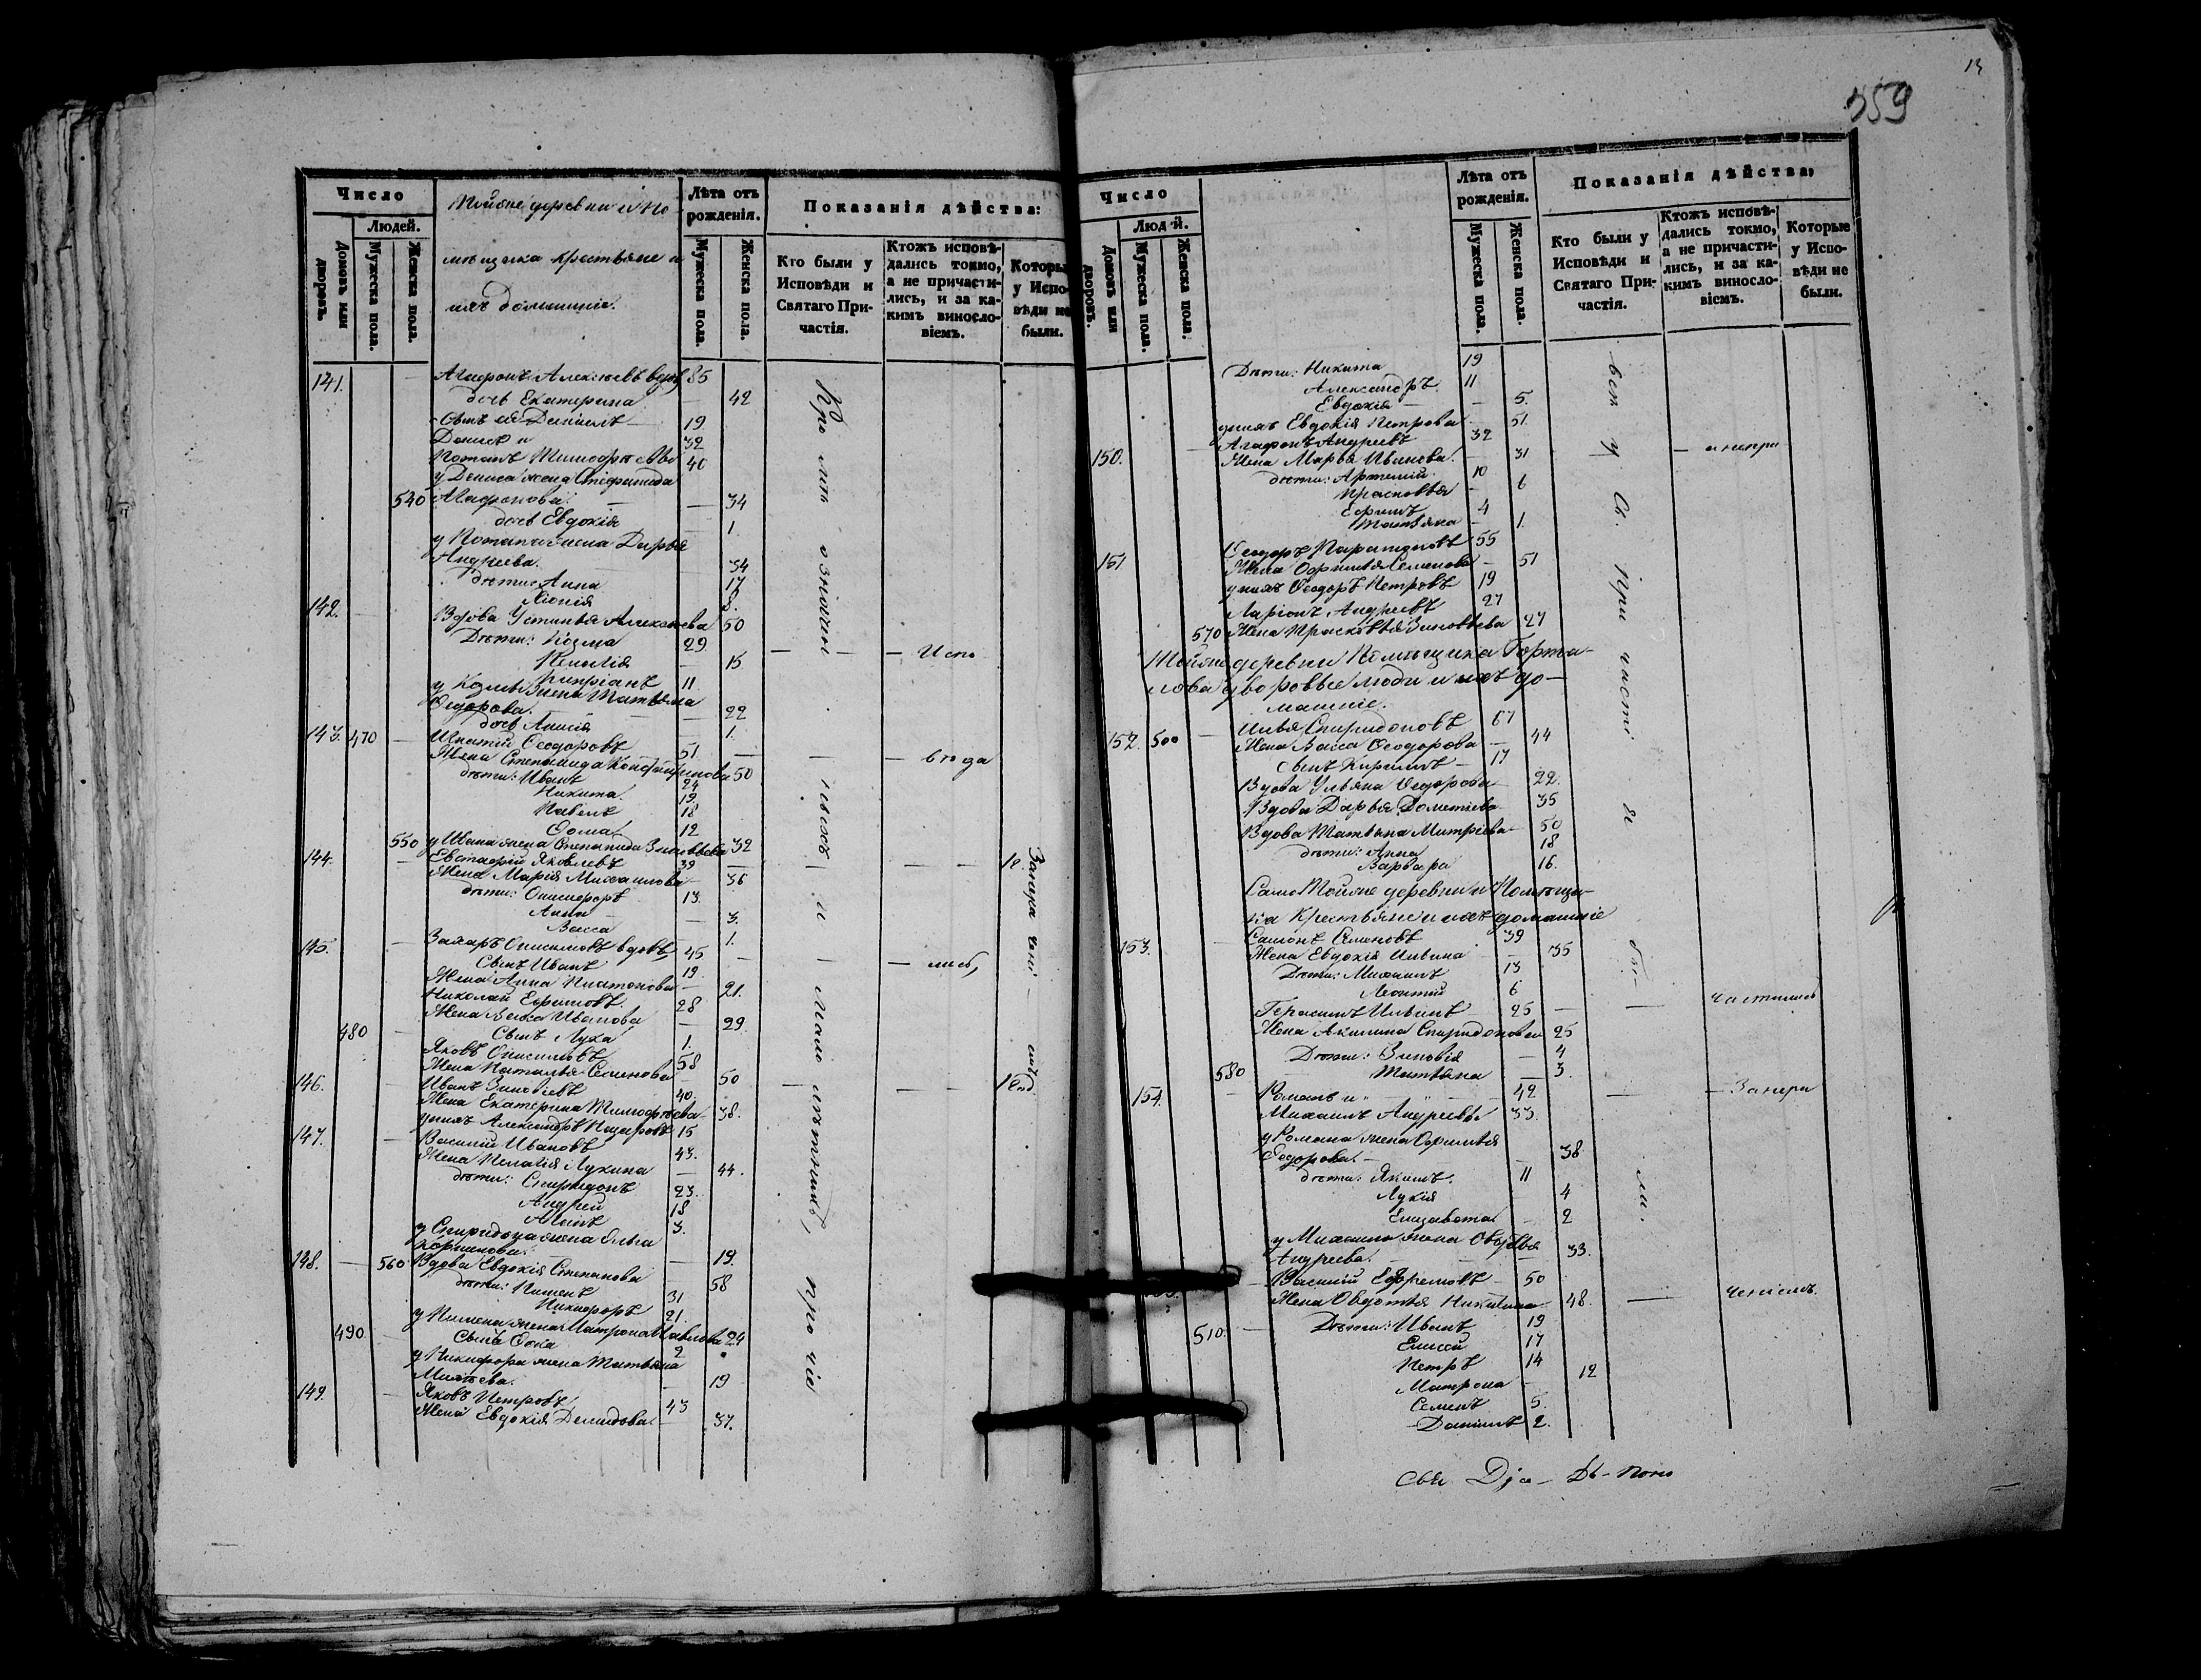 13
359
Число
Людей.
Домовъ или дворовъ.
Мужеска пола.
Женска пола.
Тойже деревни и По
мѣщика крестьяне и
ихъ домашніе.
Лѣта отъ рожденія.
Мужеска пола.
Женска пола.
Показанія дѣйства:
Кто были у Исповѣди и Святаго Причастія.
Ктожъ исповѣдались токмо, а не причастились, и за какимъ винословіемъ.
Которы у Исповѣди не были.
141. Агафонъ Алексѣевъ вдовъ 85
дочь Екатерина 42
Сынъ ея Даніилъ 19
Денисъ и 32
Потапъ Тимофѣевы 40
у Дениса жена Стефанида
540 Агафонова 34
дочь Евдокія 1.
у Потапа жена Дарья
Андреева. 34
дѣти: Анна 17
Хіонія 8.
142. Вдова Устинья Алексѣева 50
Дѣти: Козма 29
Пелагія 15
Кипріанъ 11
у Козмы жена Татьяна
Ѳедорова. 22
дочь Анисія 1.
143. 470 Игнатій Ѳеодоровъ 51
Жена Степанида 50
дѣти: Иванъ 24
Никита. 19
Павелъ 18
Ѳома 12
550 у Ивана жена Степанида Зиновьева 32
144. Евстафій Яковлевъ 39
Жена Марія Михаилова 36
дѣти: Онисифоръ 13.
Анна 3.
Васса 1.
145. Захаръ Онисимовъ вдовъ, 45
Сынъ Иванъ 19
Жена Анна Платонова 21.
Николай Ефимовъ. 28
Жена Васса Иванова 29.
480 Сынъ Лука 1.
Яковъ Онисимовъ 58
Жена Наталья Семенова 50
146. Иванъ Зиновіевъ 40.
Жена Екатерина Тимофѣева 38.
у нихъ Александръ Назаровъ 15
147. Василій Ивановъ 43.
Жена Пелагія Лукина 44.
дѣти: Спиридонъ 23.
Андрей 18
Агапъ 3.
у Спиридона жена Ольга
19.
148. 560 Вдова Евдокія Степанова 58
дѣти: Пименъ 31
Никифоръ 21.
у Пимена жена Матрона Павлова 24
490 Сынъ Ѳока 2
у Никифора жена Татьяна
Михѣева. 19
149. Яковъ Петровъ 43
Жена Евдокія Демидова 37.
Кромѣ означен ныхъ и мало лѣтныхъ, прочіе
Испо
вѣда
лись,
12
Число
Людей.
Домовъ или дворовъ.
Мужеска пола.
Женска пола.
Лѣта отъ рожденія.
Мужеска пола.
Женска пола.
Показанія дѣйства,
Кто были у Исповѣди и Святаго Причастія.
Ктожъ исповѣдались токмо, а не причастились, и за какимъ винословіемъ.
Которые у Исповѣди не были.
Дѣти: Никита 19
Александръ 11
Евдокія 5.
у нихъ Евдокія Петрова 51.
150. Агафонъ Андреевъ 32
Жена Марья Иванова. 31
дѣти: Артемій 10
Прасковья 6
Ефимъ 4
Татьяна 1.
151 Ѳеодоръ Харитоновъ 55
Жена Ефимья Семенова 51
у нихъ Ѳеодоръ Петровъ 19
Ларіонъ Андреевъ 27
570 Жена Прасковья Зиновьева 27
Тойже деревни Помѣщика Горта-
лова дворовые люди и ихъ до-
машніе.
152. 500 Илья Спиридоновъ 67
Жена Васса Ѳеодорова 44
Сынъ Кириллъ 17
Вдова Ульяна Ѳедорова 22.
Вдова Дарья Дометіева 35
Вдова Татьяна Митріева 50
дѣти: Анна 18
Варвара 16.
Тойже деревни и Помѣщи-
ка Крестьяне и ихъ домашніе
153. Самонъ Семеновъ 39
Жена Евдокія Ильина 35
Дѣти: Михаилъ 13
Леонтій 6
Герасимъ Ильинъ 25
Жена Акилина Спиридонова 25
Дѣти: Зиновія 4
580 Татьяна 3.
154. Романъ и 42
Михаилъ Андреевы 33.
у Романа жена Ефимья
Ѳедорова. 38
дѣти: Якимъ. 11
Лукія 4
Елизавета 2
у Михаила жена Овдотья
Андреева. 33.
Василій Ефремовъ 50
Жена Овдотья Никитина 48.
510. Дѣти: Иванъ 19
Елисей 17
Петръ 14
Матрона 12
Семенъ 5.
Даніилъ 2.
всѣ у Св. При часті я бы ли.
и непри
частились
За нера
ченіемъ.
Свя Діа- Дь- Поно